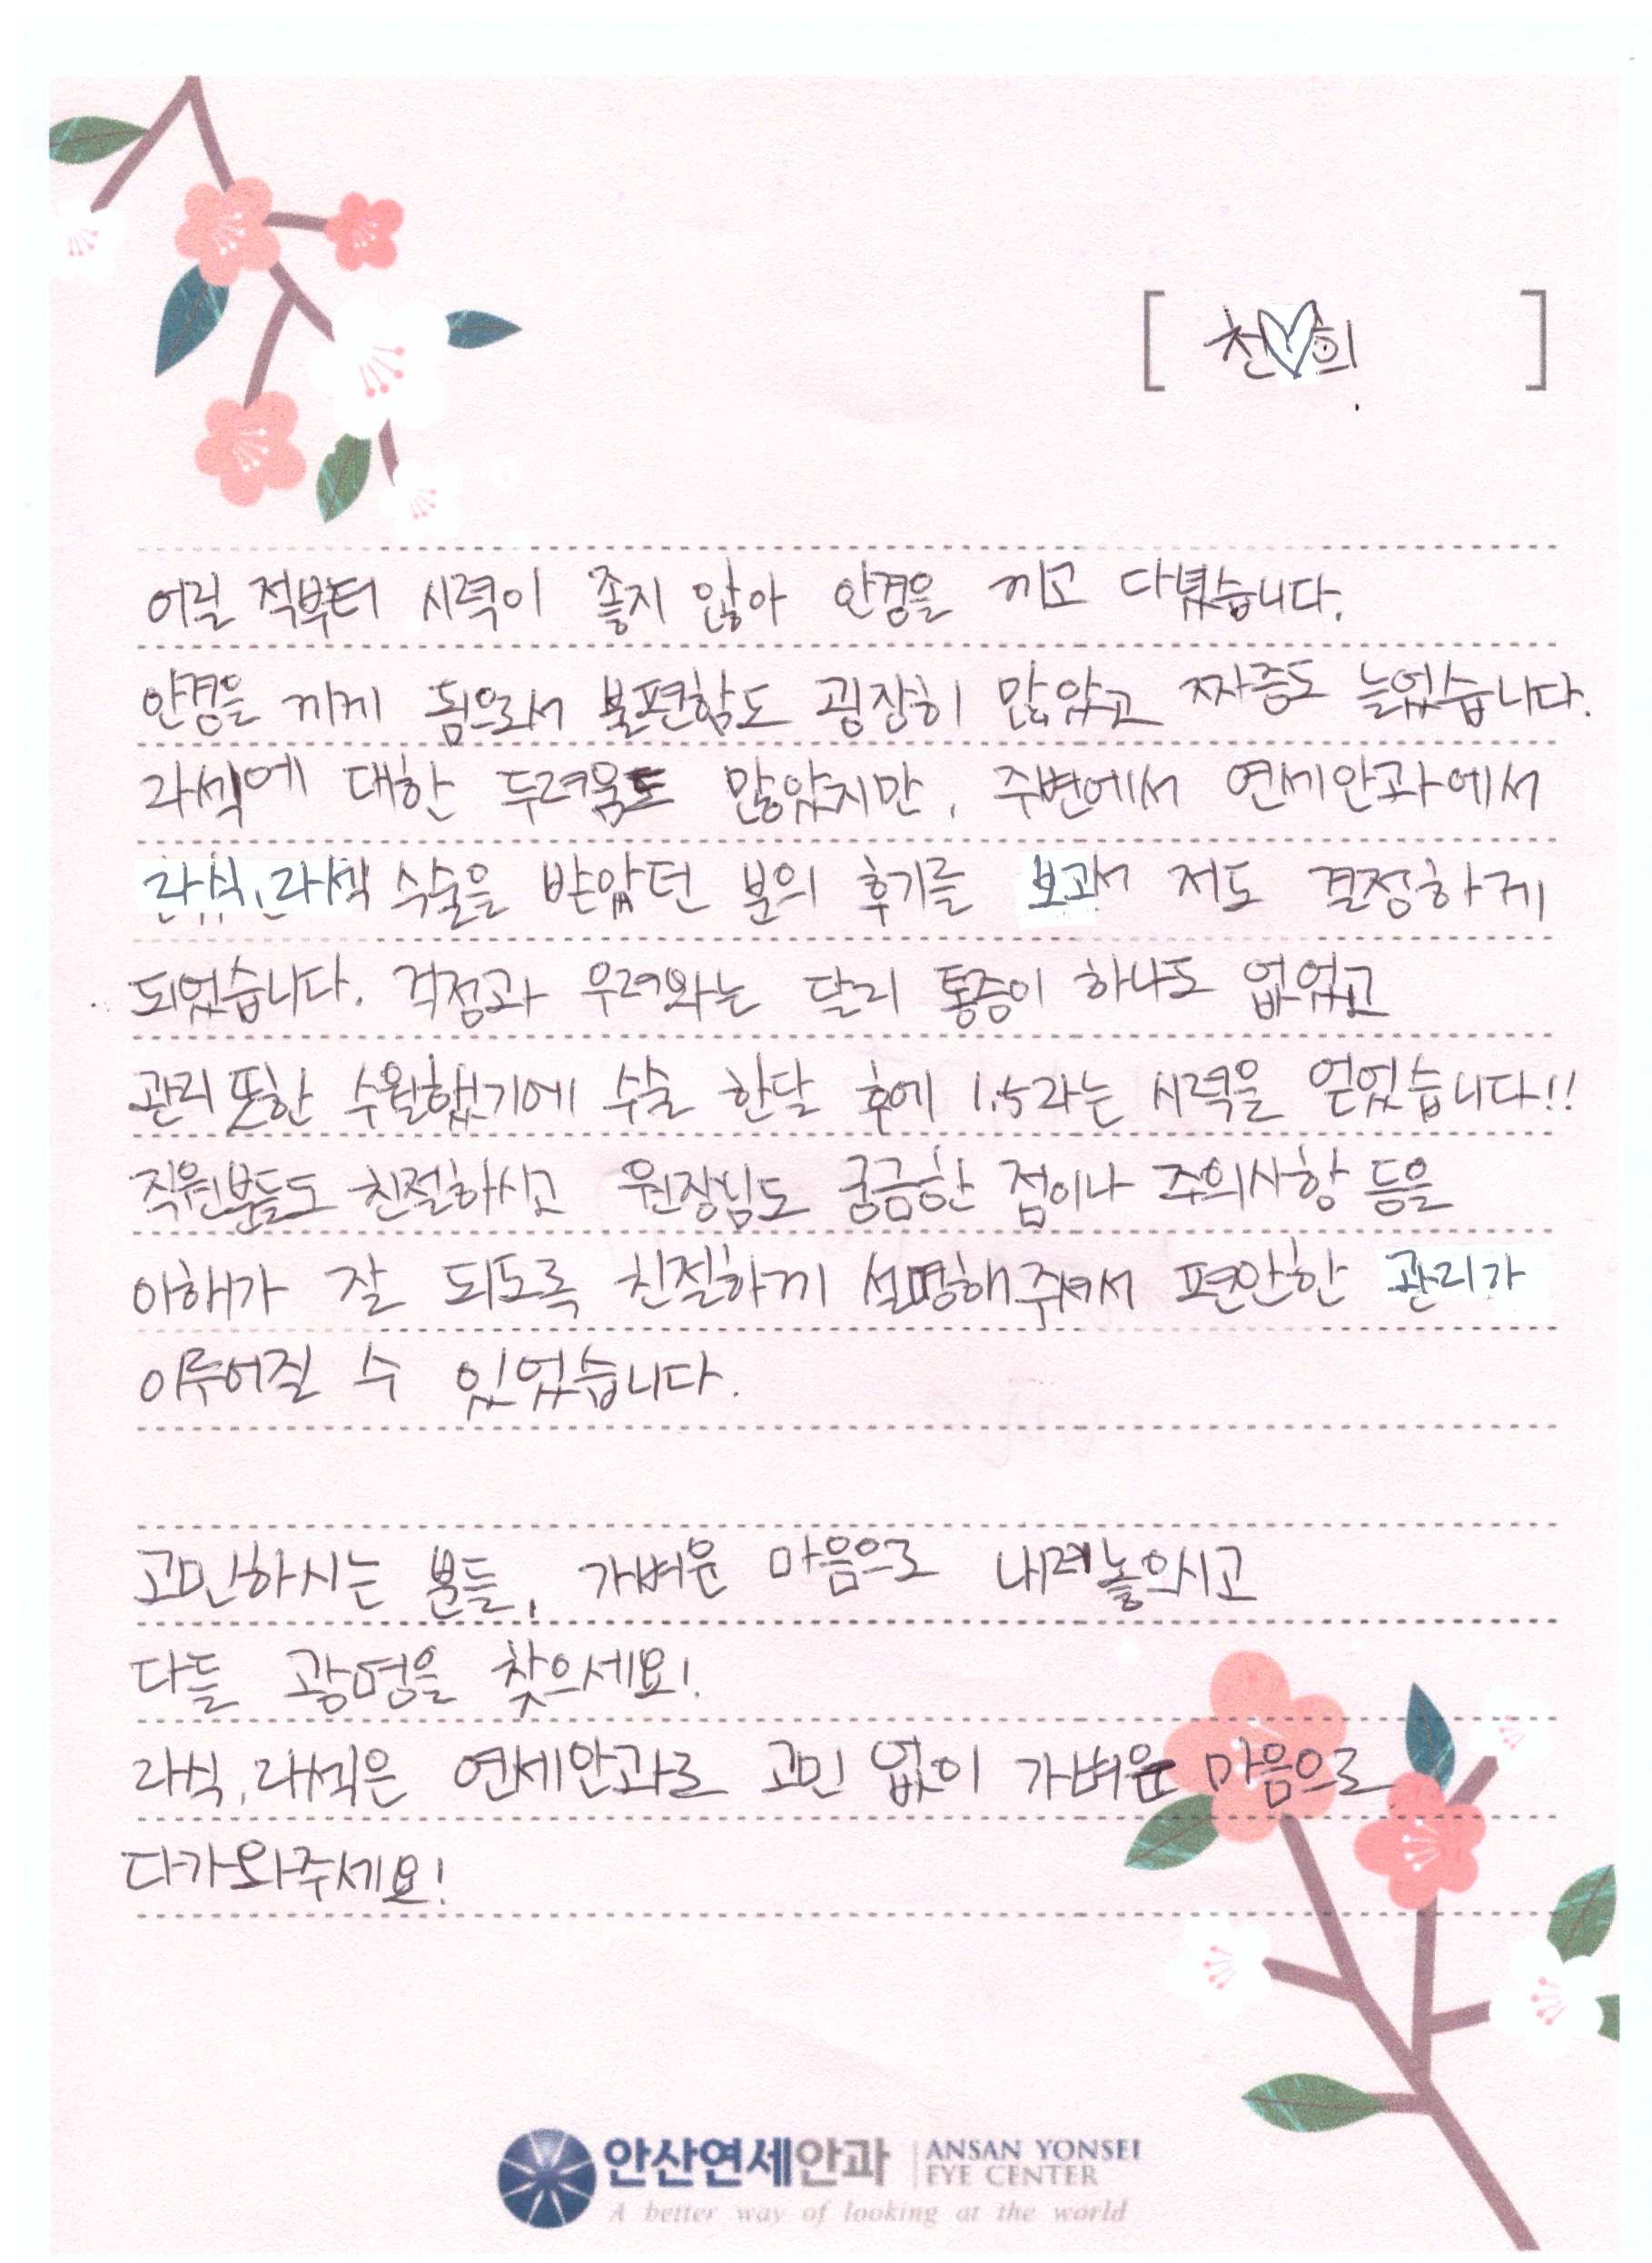 [ 천♡희 ]
어릴 적부터 시력이 좋지 않아 안경을 끼고 다녔습니다.
안경을 끼게 됨으로서 불편함도 굉장히 많았고 짜증도 늘었습니다.
라섹에 대한 두려움도 많았지만, 주변에서 연세안과에서
라식, 라섹 수술을 받았던 분의 후기를 보고서 저도 결정하게
되었습니다. 걱정과 우려와는 달리 통증이 하나도 없었고
관리 또한 수월했기에 수술 한달 후에 1.5라는 시력을 얻었습니다!!
직원분들도 친절하시고 원장님도 궁금한 점이나 주의사항 등을
이해가 잘 되도록 친절하게 설명해주셔서 편안한 관리가
이루어질 수 있었습니다.
고민하시는 분들, 가벼운 마음으로 내려놓으시고
다들 광명을 찾으세요!
라식, 라섹은 연세안과로 고민 없이 가벼운 마음으로
다가와주세요!
안산연세안과 ANSAN YONSEI
EYE CENTER
A better way of looking at the world